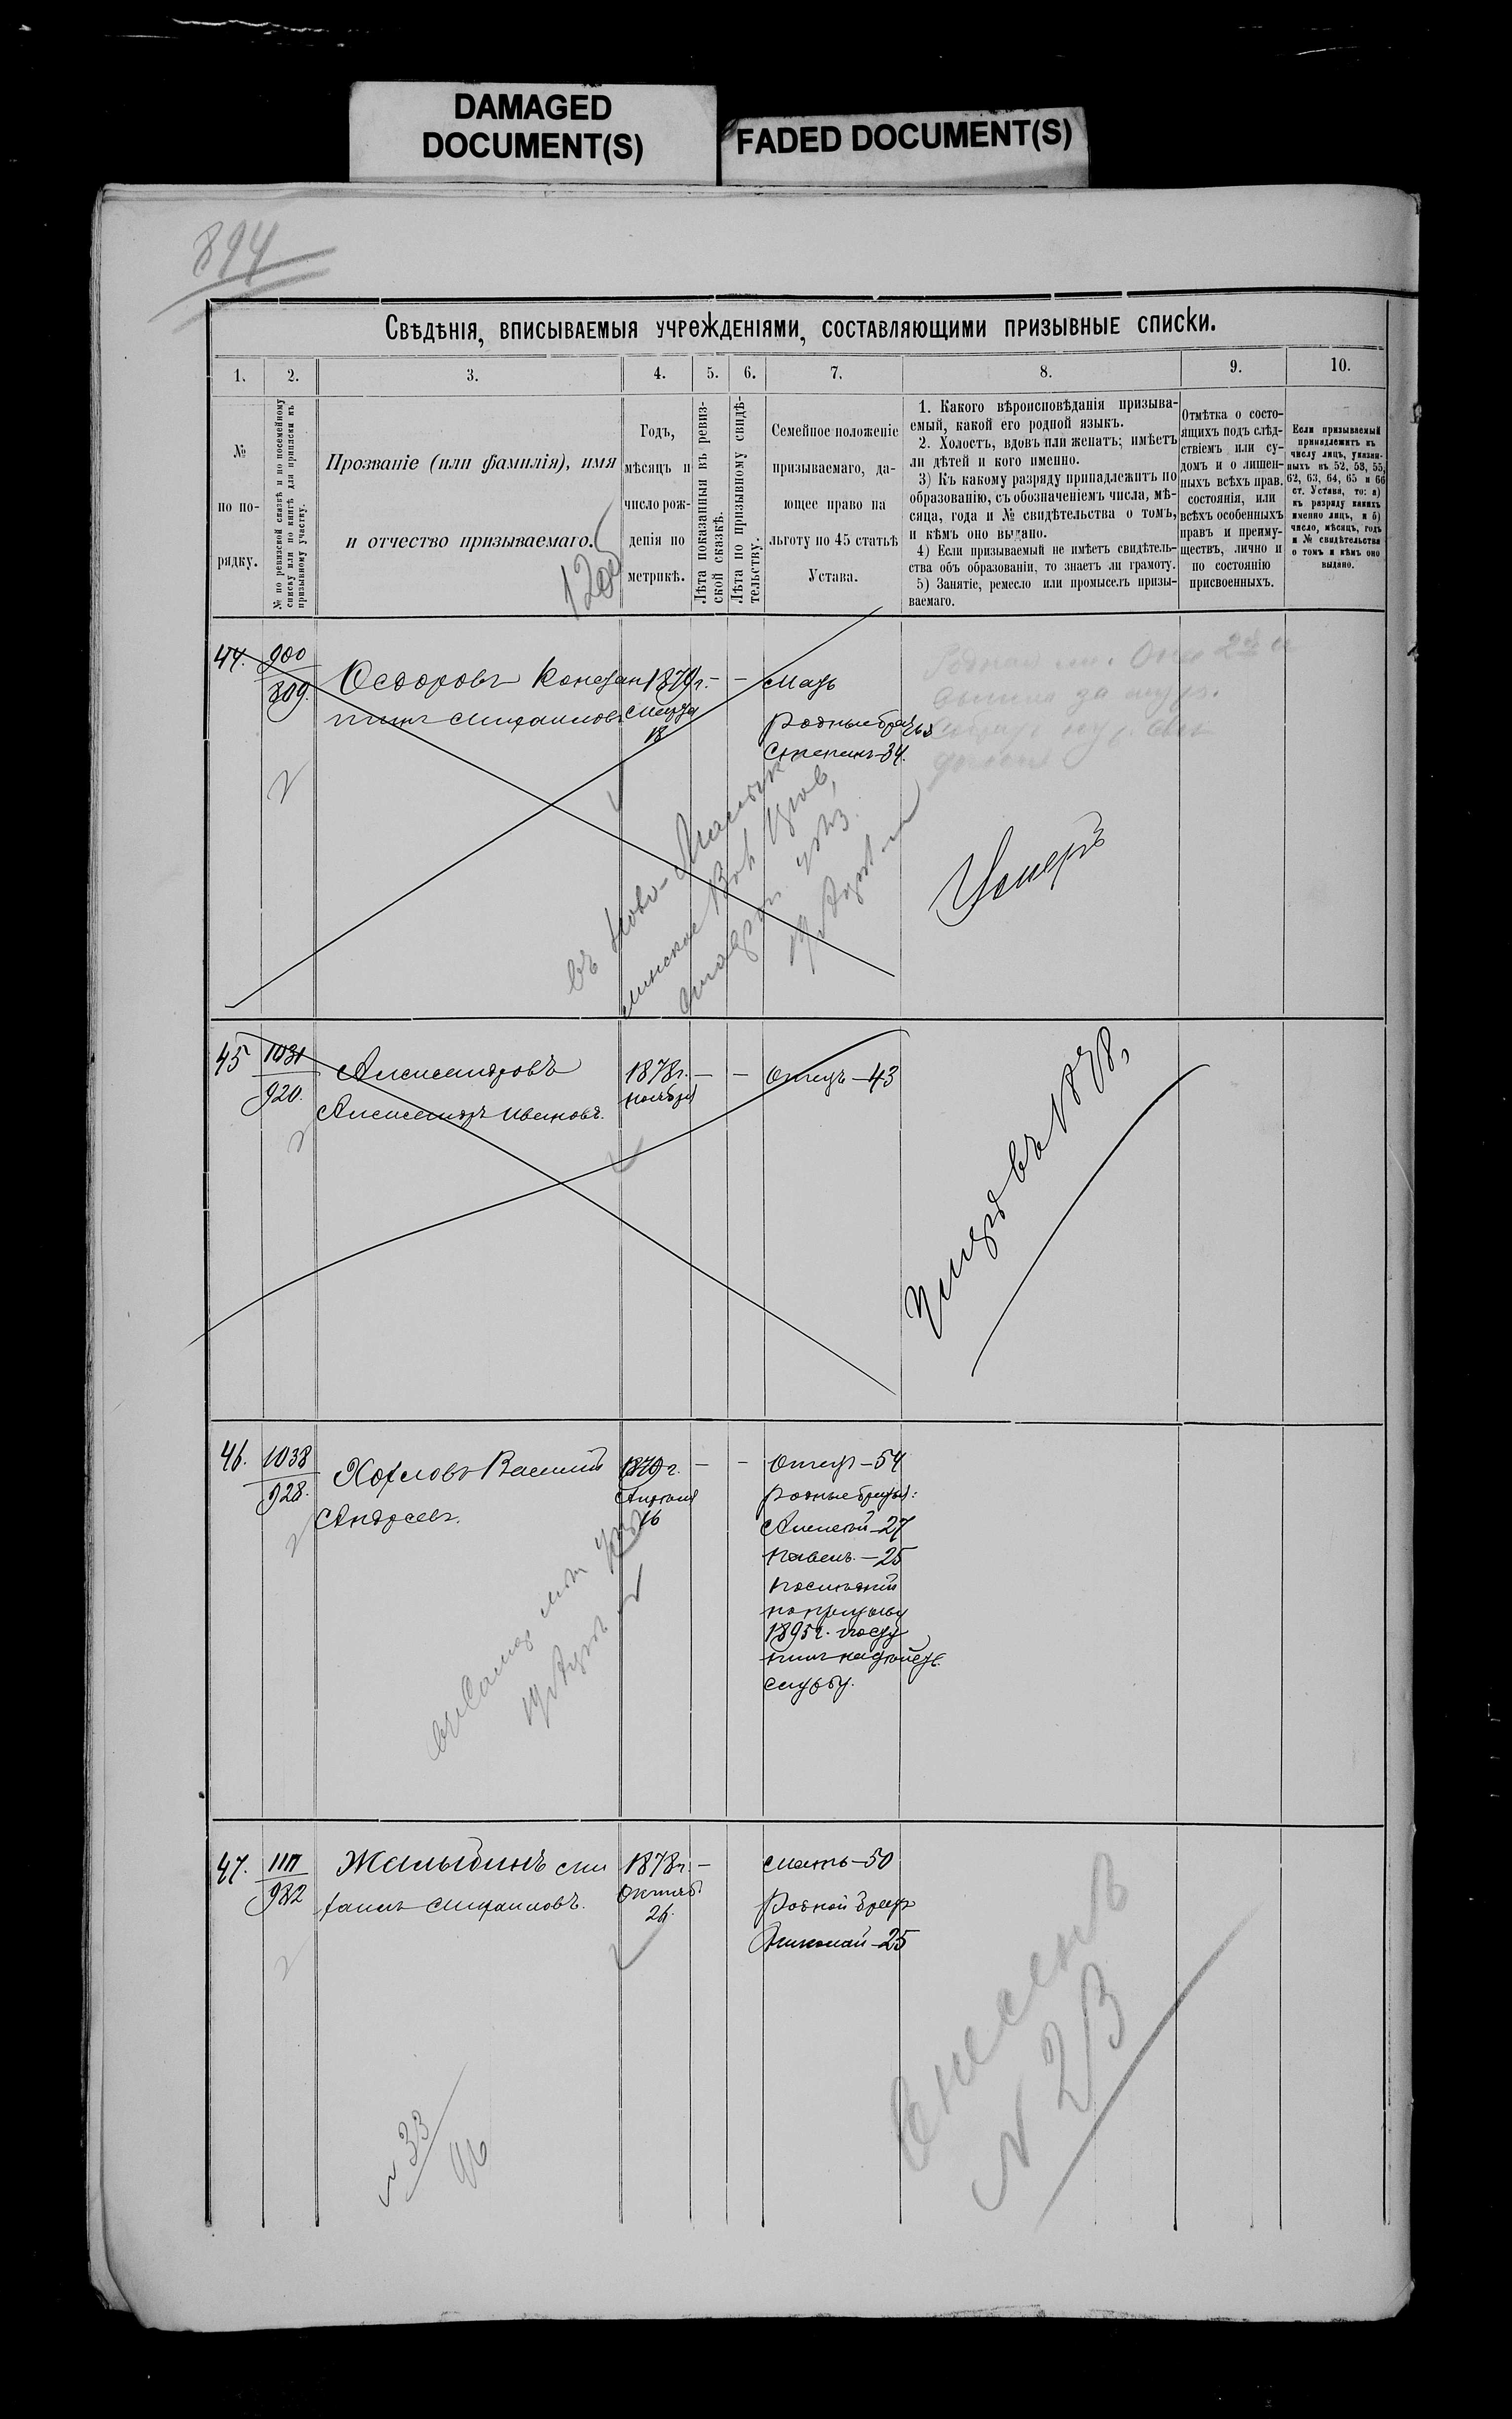 DAMAGED
DOCUMENT(S)
FADED DOCUMENT(S)
894
Свѣдѣнія, вписываемыя учрежденіями, составляющими призывные списки.
1. 2. 3. 4. 5. 6. 7. 8. 9. 10.
№
по по-
рядку.
№ по ревизской сказкѣ и по посемейному
списку или по книгѣ для приписки къ
призывному участку.
Прозваніе (или фамилія), имя
и отчество призываемаго.
Годъ,
мѣсяцъ и
число рож-
денія по
метрикѣ.
Лѣта показанныя въ ревиз-
ской сказкѣ.
Лѣта по призывному свидѣ-
тельству.
Семейное положеніе
призываемаго, да-
ющее право на
льготу по 45 статьѣ
Устава.
1. Какого вѣроисповѣданія призыва-
емый, какой его родной языкъ.
2. Холостъ, вдовъ или женатъ; имѣетъ
ли дѣтей и кого именно.
3) Къ какому разряду принадлежитъ по
образованію, съ обозначеніемъ числа, мѣ-
сяца, года и № свидѣтельства о томъ,
и кѣмъ оно выдано.
4) Если призываемый не имѣетъ свидѣтель-
ства объ образованіи, то знаетъ ли грамоту.
5) Занятіе, ремесло или промыселъ призы-
ваемаго.
Отмѣтка о состо-
ящихъ подъ слѣд-
ствіемъ или су-
домъ и о лишен-
ныхъ всѣхъ прав.
состоянія, или
всѣхъ особенныхъ
правъ и преиму-
ществъ, лично и
по состоянію
присвоенныхъ.
Если призываемый
принадлежитъ къ
числу лицъ, указан-
ныхъ въ 52, 53, 55,
62, 63, 64, 65 и 66
ст. Устава, то: а)
къ разряду какихъ
именно лицъ, и б)
число, мѣсяцъ, годъ
и № свидѣтельства
о томъ и кѣмъ оно
выдано.
44.
900
809.
Ѳедоровъ Констан
тинъ Михаиловъ
1879 г.
Марта
18
— —
Мать
Родные братья
Степанъ—34.
Умеръ
45
1031
920.
Александровъ
Александръ Ивановъ.
1878 г.
ноября
— —
Отецъ—43
въ 1878,
46.
1038
928.
Василий
Андреевъ.
1879 г.
Апреля
16
— —
Отецъ—54
Родные братья:
Алексѣй—27
Павелъ—25
последний
по призыву
1895 г. посту
пилъ на дѣйств.
службу.
47.
1111
982
Жалыбинъ Ми
хаилъ Михаиловъ.
1878 г.
Октяб
26.
—
Мать—50
Родной братъ
Николай—25
Внесенъ
№ 33
96